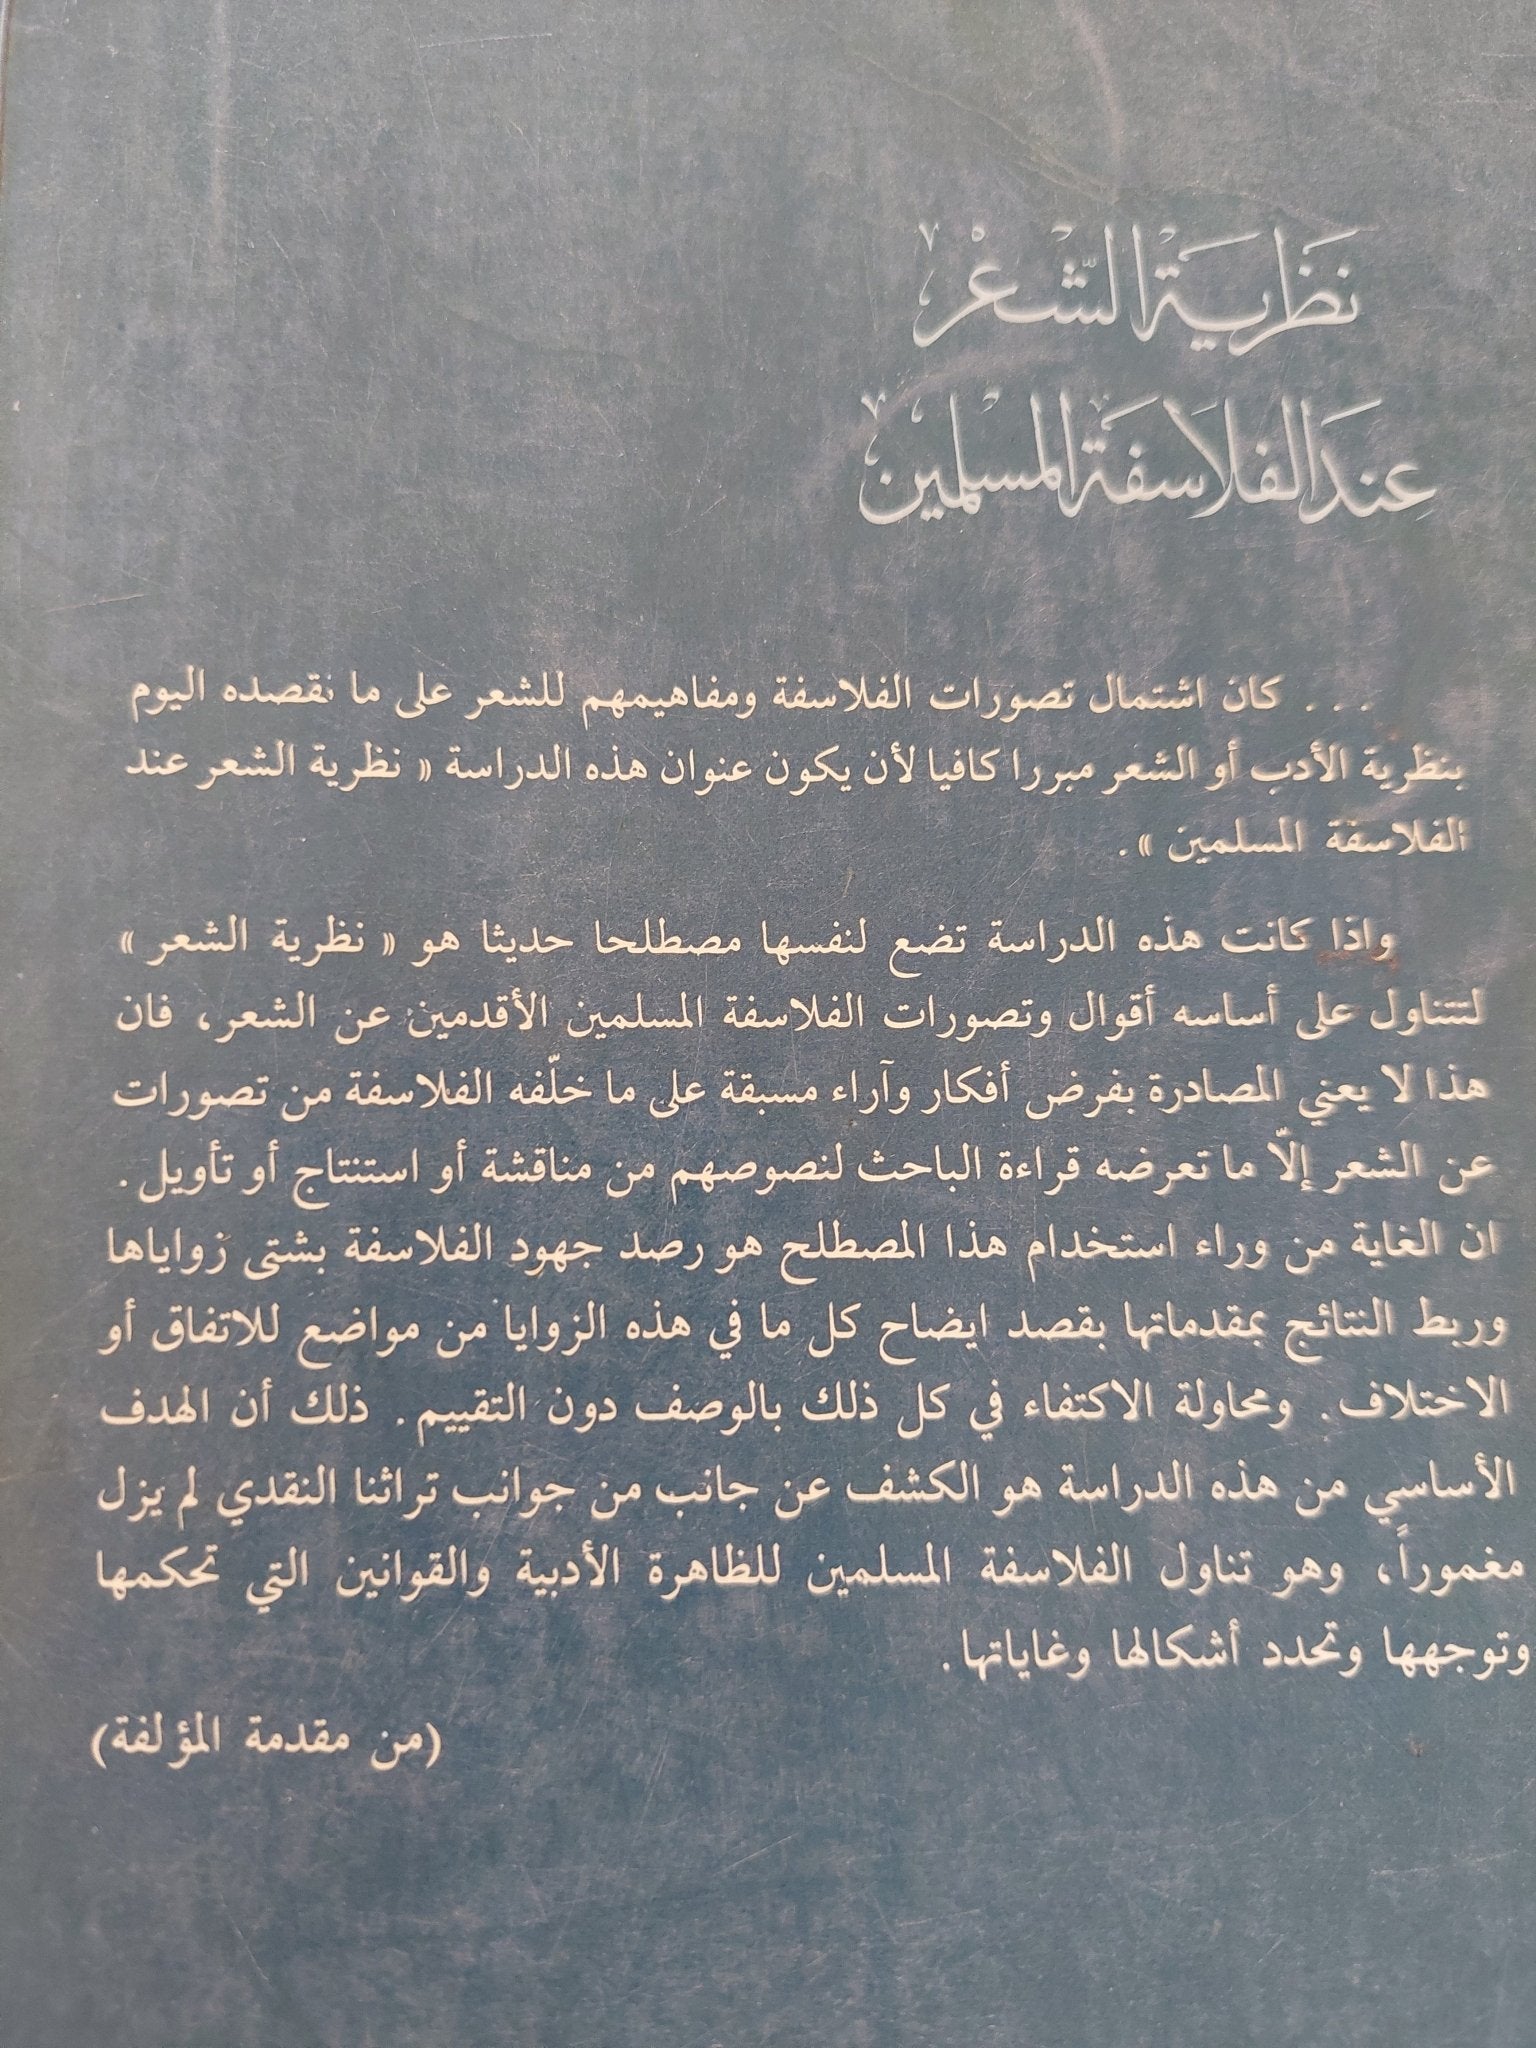 نظرية الشعر
عند الفلاسفة المسلمين
... كان اشتمال تصورات الفلاسفة ومفاهيمهم للشعر على ما نقصده اليوم
بنظرية الأدب أو الشعر مبررا كافيا لأن يكون عنوان هذه الدراسة « نظرية الشعر عند
الفلاسفة المسلمين » .
واذا كانت هذه الدراسة تضع لنفسها مصطلحا حديثا هو « نظرية الشعر »
لتتناول على أساسه أقوال وتصورات الفلاسفة المسلمين الأقدمين عن الشعر ، فان
هذا لا يعني المصادرة بفرض أفكار وآراء مسبقة على ما خلّفه الفلاسفة من تصورات
عن الشعر إلاّ ما تعرضه قراءة الباحث لنصوصهم من مناقشة أو استنتاج أو تأويل .
ان الغاية من وراء استخدام هذا المصطلح هو رصد جهود الفلاسفة بشتى زواياها
وربط النتائج بمقدماتها بقصد ايضاح كل ما في هذه الزوايا من مواضع للاتفاق أو
الاختلاف . ومحاولة الاكتفاء في كل ذلك بالوصف دون التقييم . ذلك أن الهدف
الأساسي من هذه الدراسة هو الكشف عن جانب من جوانب تراثنا النقدي لم يزل
مغموراً ، وهو تناول الفلاسفة المسلمين للظاهرة الأدبية والقوانين التي تحكمها
وتوجهها وتحدد أشكالها وغاياتها .
(من مقدمة المؤلفة)